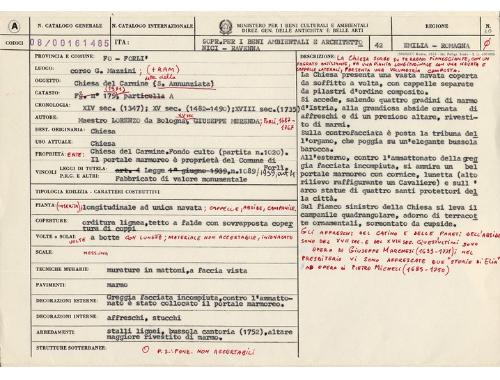 N. CATALOGO GENERALE
N. CATALOGO INTERNAZIONALE
MINISTERO PER I BENI CULTURALI E AMBIENTALI
DIREZ. GEN. DELLE ANTICHITÀ E BELLE ARTI
REGIONE
N.
CODICI
08/00161485
ITA:
SOPR.PER I BENI AMBIENTALI E ARCHITETTO
NICI - RAVENNA
42
EMILIA - ROMAGNA
PROVINCIA E COMUNE:
FO - FORLI'
LUOGO:
corso G. Mazzini; (TRAM)
OGGETTO:
Chiesa del Carmine (S. Annunziata)
CATASTO:
Fg. n° 179 particella A
CRONOLOGIA:
XIV sec.(1347); XV sec.(1482-1490);XVIII sec.(1735
AUTORE:
Maestro LORENZO da Bologna, GIUSEPPE MERENDA
DEST. ORIGINARIA:
Chiesa
USO ATTUALE:
Chiesa
PROPRIETÀ:
ENTE:
Chiesa del Carmine.Fondo culto (partita n.1020).
Il portale marmoreo è proprietà del Comune di
Forlì.
VINCOLI
LEGGI DI TUTELA:
P.R.G. E ALTRI:
art. 4 legge 1° giugno 1939,n.1089/1939,art.4
Fabbricato di valore monumentale
TIPOLOGIA EDILIZIA - CARATTERI COSTRUTTIVI
PIANTA:
longitudinale ad unica navata; CAPPELLE, ABSIDE, CAMPANILE
COPERTURE:
orditura lignea,tetto a falde con sovrapposta coper
tura di coppi
VOLTE o SOLAI:
VOLTE a botte CON LUNETTE; MATERIALE NON ACCERTABILE, INTONACATO
SCALE:
NESSUNA
TECNICHE MURARIE:
murature in mattoni,a faccia vista
PAVIMENTI:
marmo
DECORAZIONI ESTERNE:
Greggia facciata incompiuta,contro l'ammatto-
nato è stato collocato il portale marmoreo.
DECORAZIONI INTERNE:
affreschi, stucchi
ARREDAMENTI:
stalli lignei, bussola cantoria (1752),altare
maggiore rivestito di marmo.
STRUTTURE SOTTERRANEE:
P.S.: FOND. NON ACCERTABILI
DESCRIZIONE:
La Chiesa presenta una vasta navata coperta
da soffitto a volta, con cappelle separate
da pilastri d'ordine composto.
Si accede, salendo quattro gradini di marmo
d'Istria, alla grandiosa abside ornata di
affreschi e di un prezioso altare, rivesti-
to di marmi.
Sulla controfacciata è posta la tribuna del
l'organo, che poggia su un'elegante bussola
barocca.
All'esterno, contro l'ammattonato della greg
gia facciata incompiuta, si ammira un bel
portale marmoreo con cornice, lunetta (alto
rilievo raffigurante un Cavaliere) e sull'
arco statue di quattro santi protettori del
la città.
Sul fianco sinistro della Chiesa si leva il
campanile quadrangolare, adorno di terracot
te ornamentali, sormontato da cuspide.
GLI AFFRESCHI DEL CATINO E DELLE PARETI DELL'ABSIDE
SONO DEL XVII SEC. E DEL XVIII SEC. QUEST'ULTIMI SONO
OPERA DI GIUSEPPE MARCHESI (1699-1771); NEL
PRESBITERIO VI SONO AFFRESCATE DUE "STORIE DI ELIA"
AD OPERA DI PIETRO MICHELI